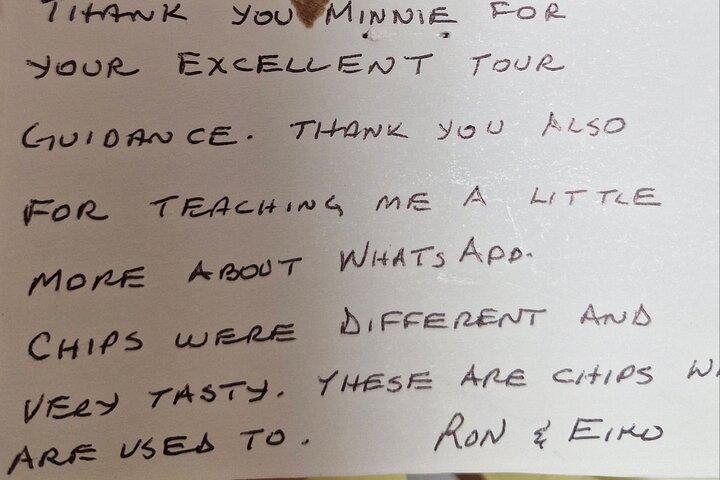 THANK YOU MINNIE FOR
YOUR EXCELLENT TOUR
GUIDANCE. THANK YOU ALSO
FOR TEACHING ME A LITTLE
MORE ABOUT WHATSAPP.
CHIPS WERE DIFFERENT AND
VERY TASTY. THESE ARE CHIPS
ARE USED TO. RON & EIKO